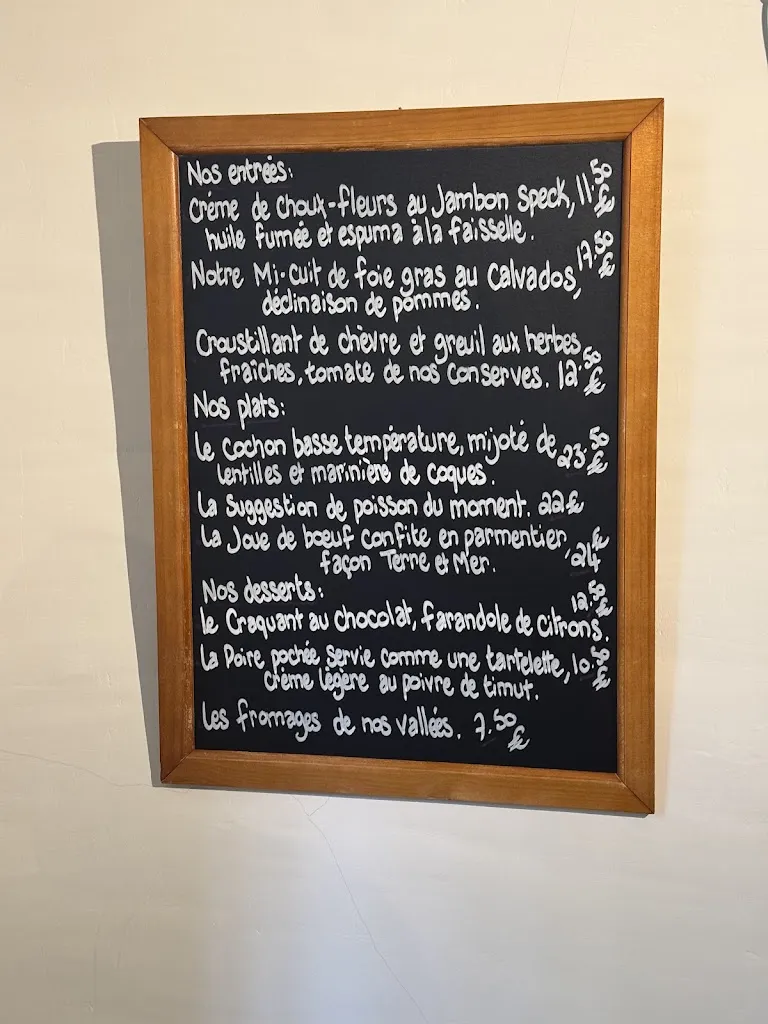 Nos entrées:
Crème de choux-fleurs au Jambon Speck, 11.50 €
huile fumée et espuma à la faisselle.
Notre Mi-cuit de foie gras au Calvados, 17.50 €
déclinaison de pommes.
Croustillant de chèvre et greuil aux herbes
fraîches, tomate de nos conserves. 12.50 €
Nos plats:
Le Cochon basse température, mijoté de 23.50 €
lentilles et marinière de coques.
La Suggestion de poisson du moment. 22 €
La Joue de bœuf confite en parmentier, 24 €
façon Terre et Mer.
Nos desserts:
Le Craquant au chocolat, farandole de citrons. 12.50 €
La Poire pochée servie comme une tartelette, 10.50 €
crème légère au poivre de timut.
Les fromages de nos vallées. 7.50 €